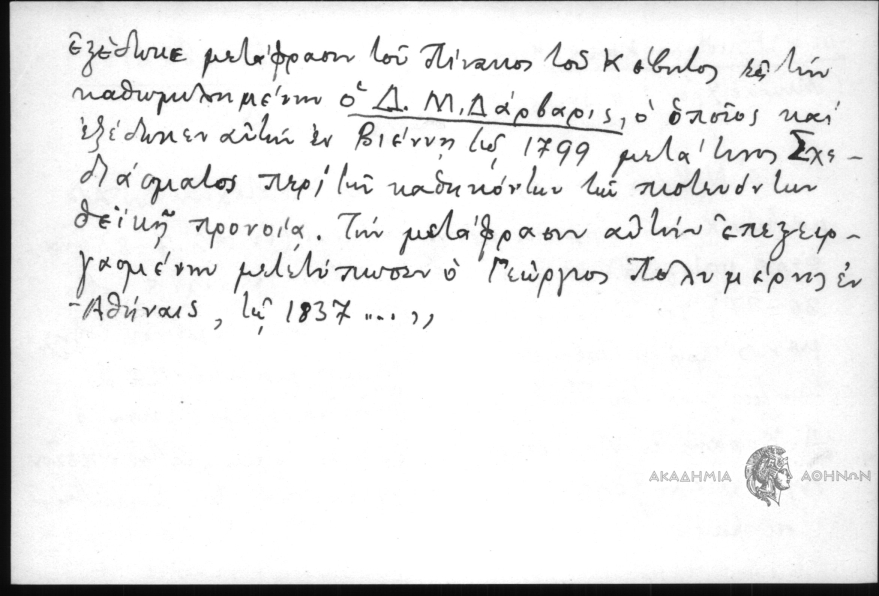 ἐξέδωκε μετάφρασιν τοῦ Πίνακος τοῦ Κέβητος εἰς τὴν
καθωμιλημένην ὁ Δ. Μ. Δάρβαρις, ὁ ὁποῖος καὶ
ἐξέδωκεν αὐτὴν ἐν Βιέννῃ τῷ 1799 μετά τινος Σχε-
διάσματος περὶ τῶν καθηκόντων τῶν πιστευόντων
θεϊκῇ προνοίᾳ. Τὴν μετάφρασιν αὐτὴν ἐπεξειρ-
γασμένην μετετύπωσεν ὁ Γεώργιος Πολυμέρης ἐν
Ἀθήναις, τῷ 1837 ....,,
ΑΚΑΔΗΜΙΑ ΑΘΗΝΩΝ